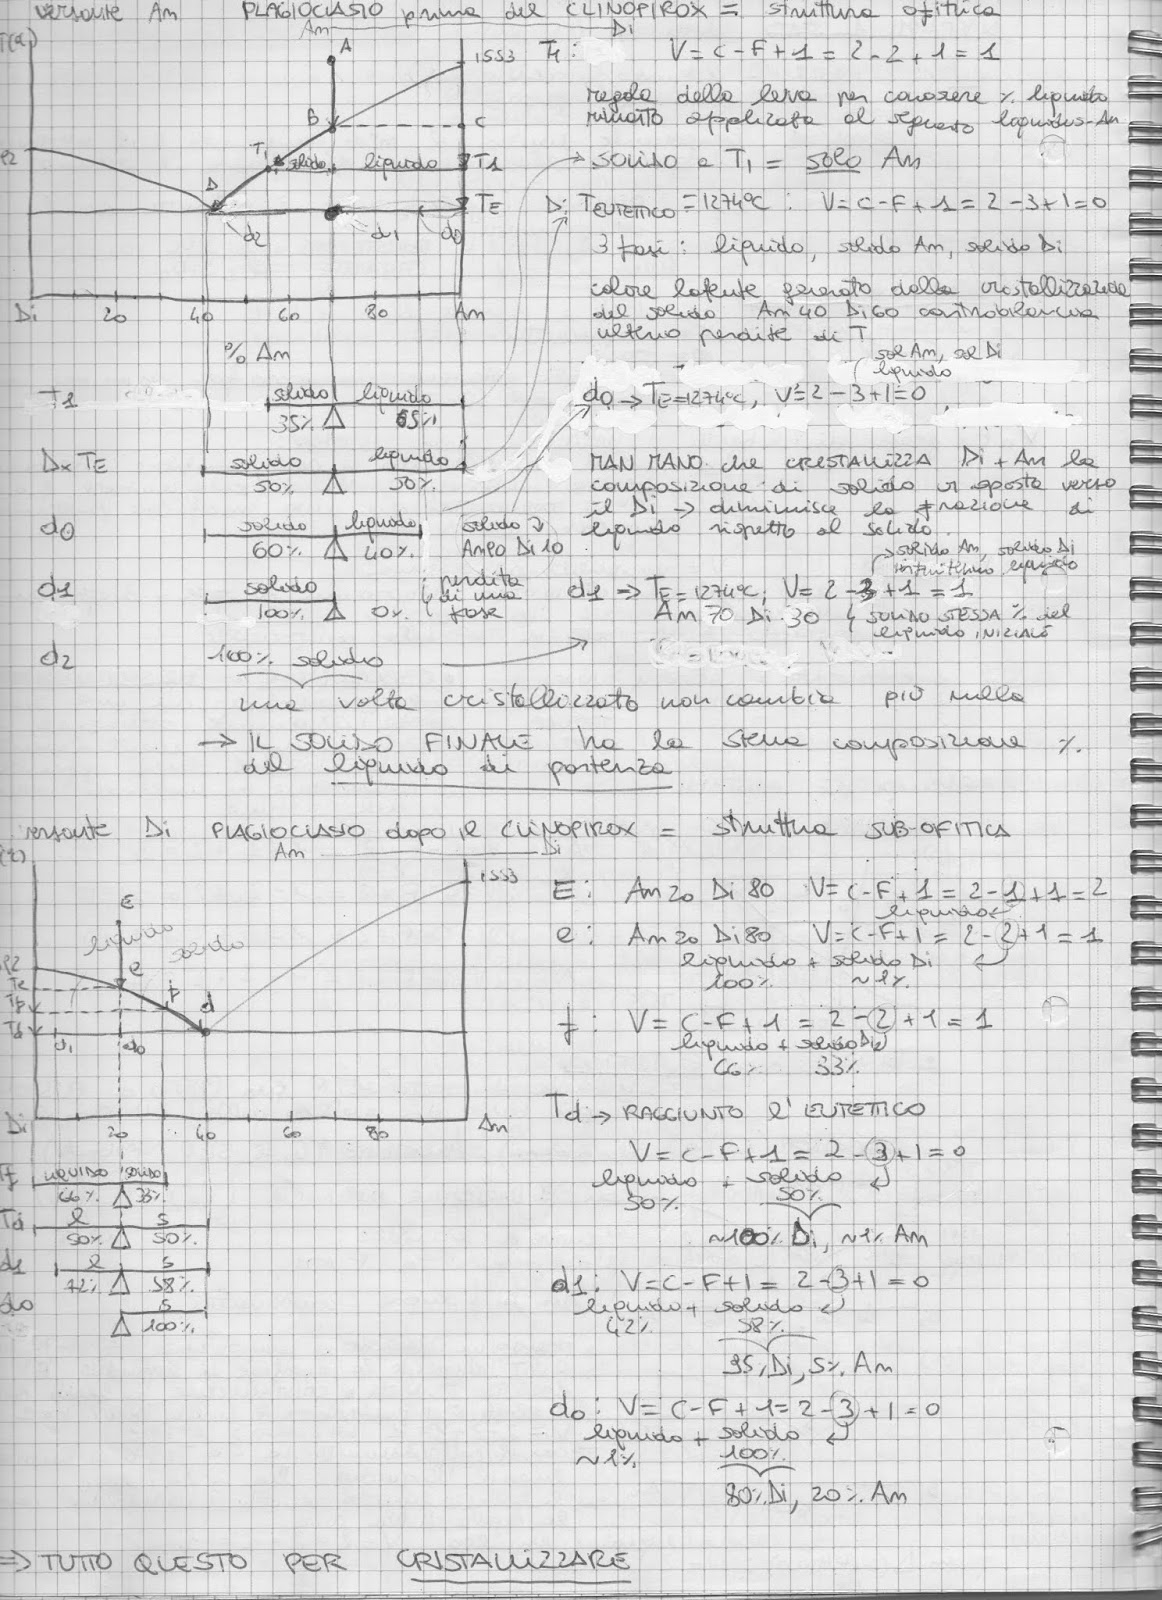 versante An PLAGIOCLASIO prima del CLINOPIROX = struttura ofitica
An Di
A
1553
B
C
T1
solido liquido T1
D
TE
d2 d1 d0
Di 20 40 60 80 An
% An
T1: V = C-F+1 = 2-2+1 = 1
regola della leva per conoscere % liquido
rimasto applicata al segmento liquidus-An
→ SOLIDO a T1 = SOLO An
T EUTETTICO = 1274°C : V = C-F+1 = 2-3+1=0
3 fasi: liquido, solido An, solido Di
calore latente generato dalla cristallizzazione
del solido An 40 Di 60 controbilancia
ulteriori perdite di T
T1 solido liquido
35% 65%
D x TE solido liquido
50% 50%
d0 solido liquido solido
60% 40% An 90 Di 10
d1 solido perdita di una fase
100% 0%
d2 100% solido
sol An, sol Di
liquido
d0 → TE=1274°C, V=2-3+1=0
MAN MANO che CRISTALLIZZA Di + An la
composizione di solido si sposta verso
il Di → diminuisce la frazione di
liquido rispetto al solido.
solido An, solido Di
liquido
d1 → TE=1274°C; V= 2-2+1 = 1
An 70 Di 30 SOLIDO STESSA % del
liquido INIZIALE
una volta cristallizzato non cambia più nulla
→ IL SOLIDO FINALE ha la stessa composizione %
del liquido di partenza
versante Di PLAGIOCLASIO dopo il CLINOPIROX = struttura SUB-OFITICA
An Di
1553
E
liquido
solido
e
Te
f
Tf
d
Td
d1 d0
Di 20 40 60 80 An
E: An 20 Di 80 V= C-F+1 = 2-1+1 = 2
liquido
e: An 20 Di 80 V=C-F+1 = 2-2+1 = 1
liquido + solido Di
100% ~1%
f: V= C-F+1 = 2-2+1 = 1
liquido + solido Di
66% 33%
Td → RAGGIUNTO l'EUTETTICO
V= C-F+1 = 2-3+1=0
liquido + solido
50% 50%
~100% Di, ~1% An
d1: V=C-F+1 = 2-3+1 = 0
liquido + solido
42% 58%
95% Di, 5% An
d0: V= C-F+1= 2-3+1=0
liquido + solido
~1% 100%
80% Di, 20% An
Tf LIQUIDO SOLIDO
66% 33%
Td l s
50% 50%
d1 l s
42% 58%
d0 s
100%
⇒ TUTTO QUESTO PER CRISTALLIZZARE